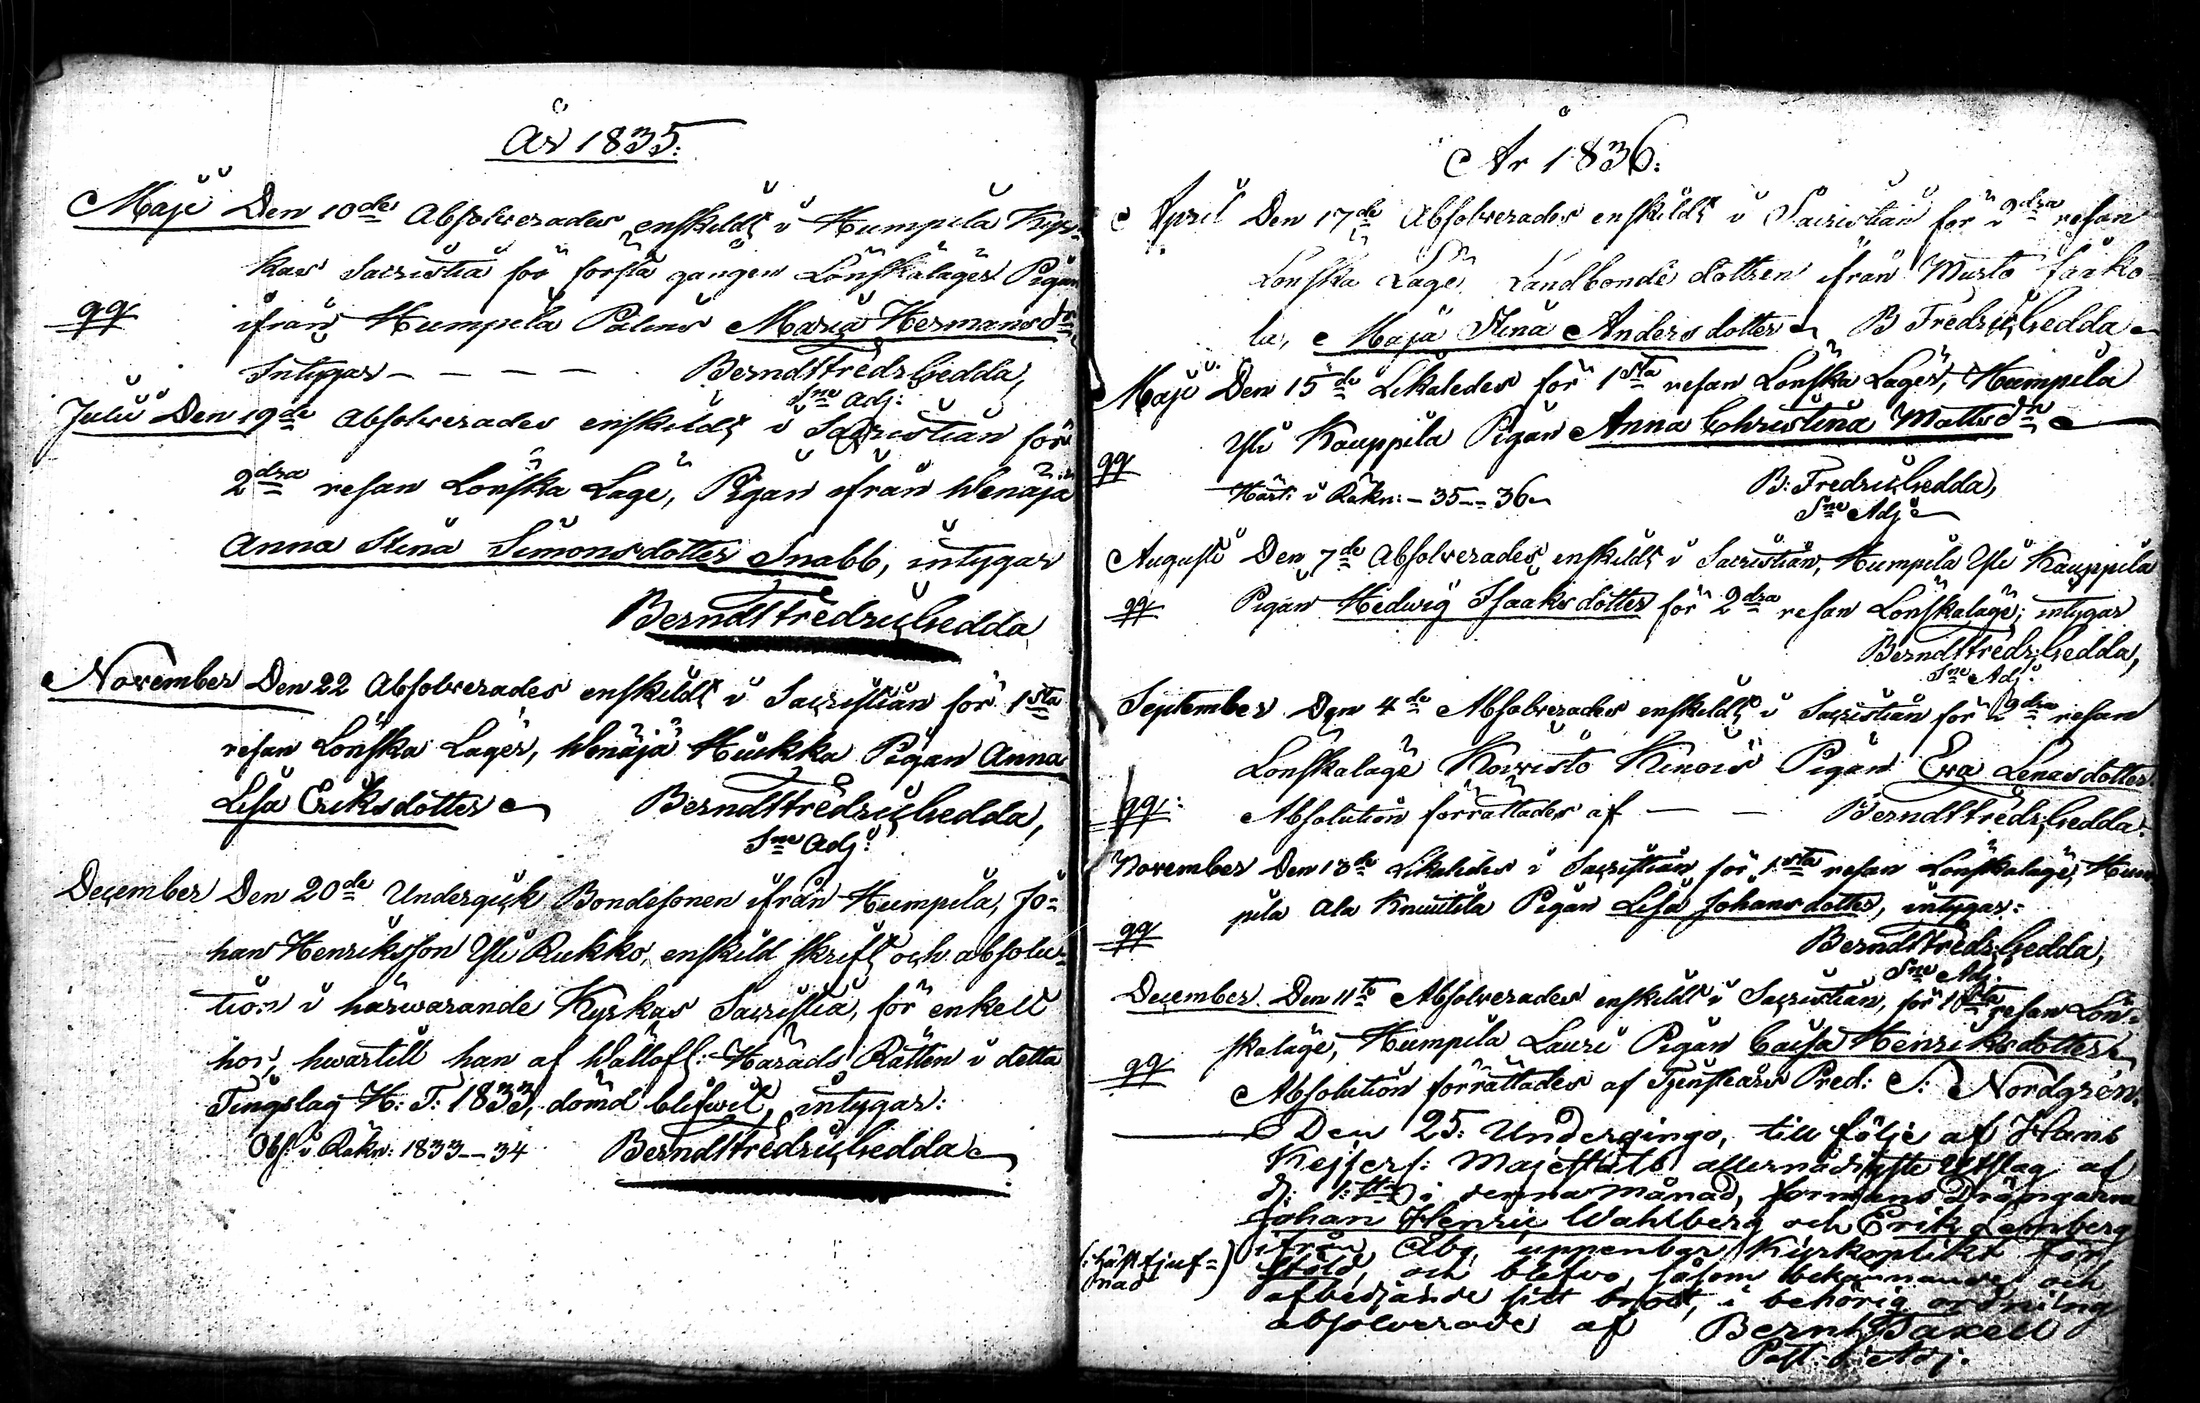 År 1835.
Maji Den 10de Absolverades enskildt i Humpila Kyr-
kas Sacristia för första gången Lönskaläger Pigan
qq ifrån Humpila Palins Maria Hermansdr
Intygar — — — — Berndt Fredr: Gedda,
Sne Adj:
Julii Den 19de Absolverades enskildt i Sacristian för
2dra resan Lönska Läge, Pigan ifrån Wenäjä
Anna Stina Simonsdotter Snabb, intygar
Berndt Fredric Gedda
November Den 22 Absolverades enskildt i Sacristian för 1sta
resan Lönska Läger, Wenäjä Huikka Pigan Anna
Lisa Eriksdotter Berndt Fredric Gedda,
Sne Adj:
December Den 20de Undergick Bondesonen ifrån Humpila, Jo-
han Henriksson Yli Rukko, enskild skrift och absolu-
tion i härwarande Kyrkas Sacristia, för enkelt
hor, hwartill han af Wällofl: Härads Rätten i detta
Tingslag H: T: 1833, dömd blifwit, intygar:
Obs: i Räkn: 1833–34 Berndt Fredric Gedda
År 1836.
April Den 17de Absolverades enskildt i Sacristian för 2dra resan
Lönska Läge Landbonde dottren ifrån Murto Jaako-
la, Maja Stina Andersdotter B Fredric Gedda
Maji Den 15de Likaledes för 1sta resan Lönska Läger, Humpila
Yli Kauppila Pigan Anna Christina Mattsdr
qq
Härt: i Räkn: – 35–36 B: Fredric Gedda,
Sne Adj:
Augusti Den 7de Absolverades enskildt i Sacristian, Humpila Yli Kauppila
qq Pigan Hedwig Isaaksdotter för 2dra resan Lönskaläge; intygar
Berndt Fredr: Gedda,
Sne Adj:
September Den 4de Absolverades enskildt i Sacristian för 2dra resan
Lönskaläge Koivisto Kinois Pigan Eva Lenasdotter
qq: Absolution förrättades af — — Berndt Fredr: Gedda.
November Den 13de Likaledes i Sacristian för 1sta resan Lönskaläge, Hum
pila Ala Knuutila Pigan Lisa Johansdotter, intygar:
qq
Berndt Fredr: Gedda,
Sne Adj:
December Den 11te Absolverades enskildt i Sacristian, för 1sta resan Lön-
skaläge, Humpila Lauri Pigan Caisa Henriksdotter
qq Absolution förrättades af Tjenstgörs Pred: S: Nordgren.
Den 25: Undergingo, till följe af Hans
Kejserl: Majestäts allernådigste Utslag af
d: 1:sta i denna månad, formans Drängarne
Johan Henric Wahlberg och Erik Lemberg
ifrån Åbo uppenbar Kyrkoplikt för
(: häst tjuf- nad ) stöld, och blefwo, såsom bekännande och
afbedjande sitt brott, i behörig ordning
absolverade af Bernh: Taxell
Past: Adj.